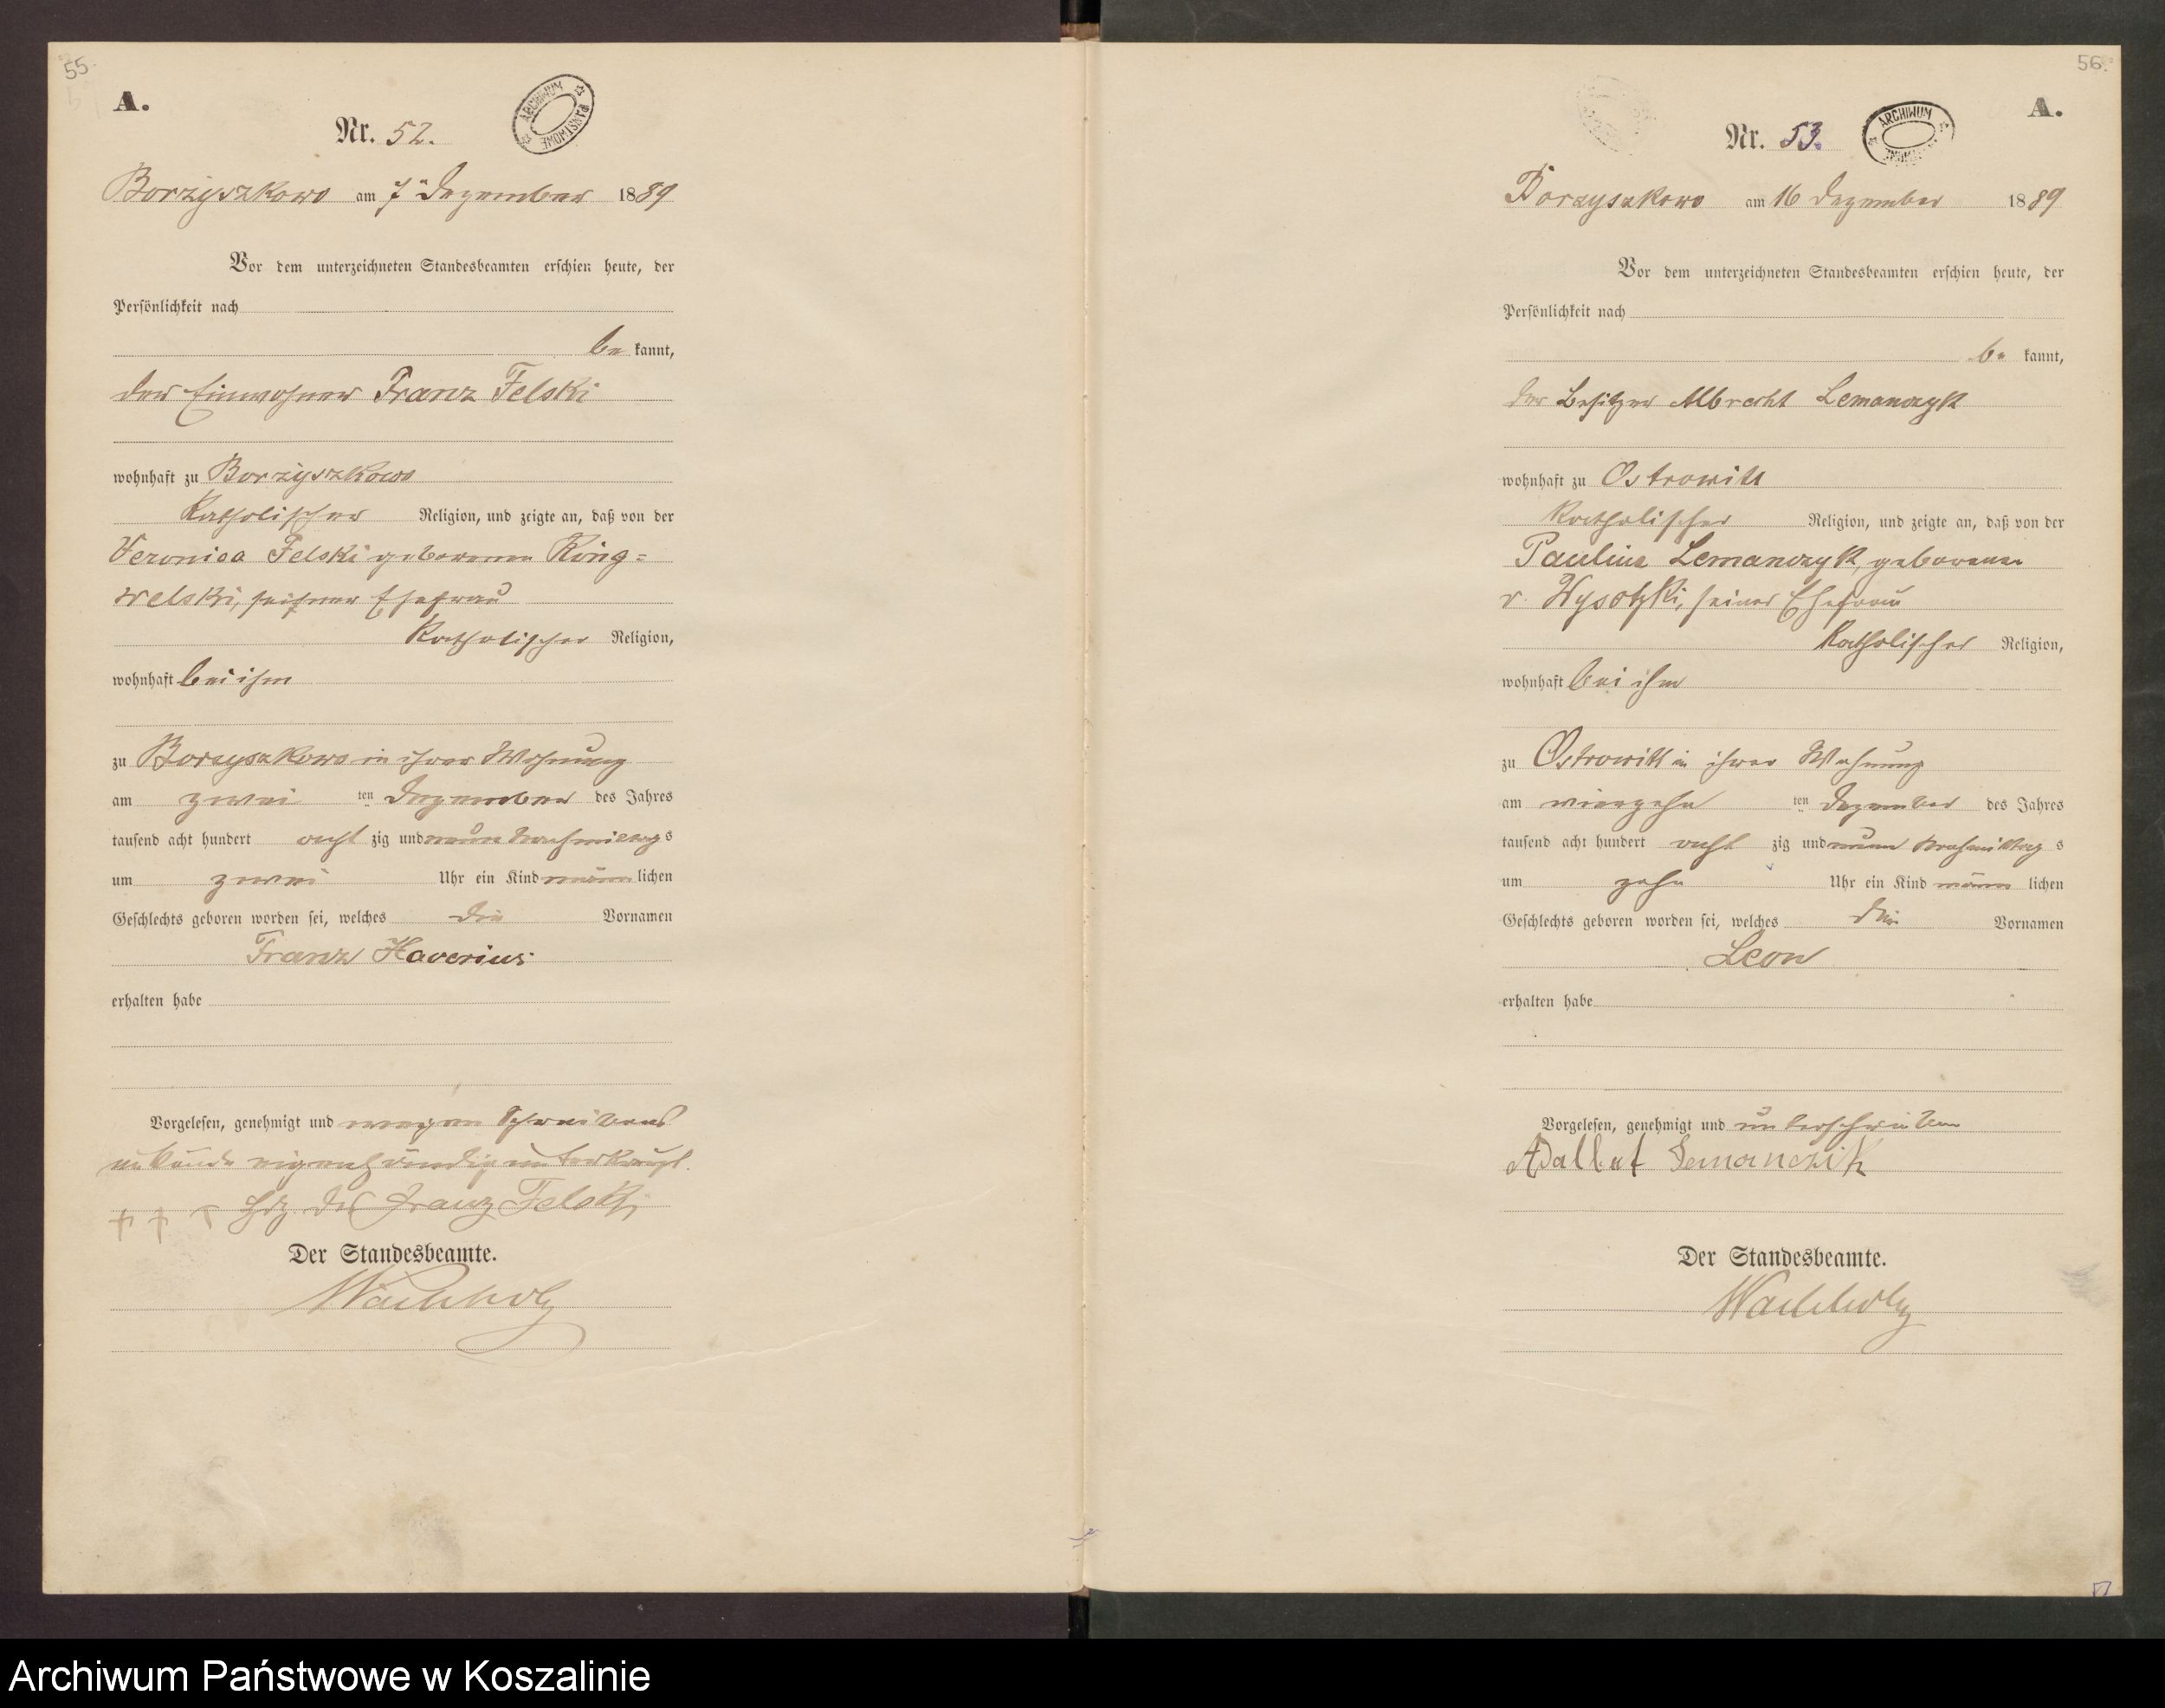 55.
A.
Nr. 52.
ARCHIWUM PAŃSTWOWE
Borzyszkowo am 7 Dezember 1889
Vor dem unterzeichneten Standesbeamten erschien heute, der
Persönlichkeit nach
be kannt,
der Einwohner Franz Felski
wohnhaft zu Borzyszkowo
katholischer Religion, und zeigte an, daß von der
Veronica Felski geborenen Ring=
welski, seiner Ehefrau
katholischer Religion,
wohnhaft bei ihm
zu Borzyszkowo in ihrer Wohnung
am zwei ten Dezember des Jahres
tausend acht hundert acht zig und neun Nachmittag s
um zwei Uhr ein Kind männ lichen
Geschlechts geboren worden sei, welches die Vornamen
Franz Xaverius
erhalten habe
Vorgelesen, genehmigt und wegen Schreibens
unkunde eigenhändig unterkreuzt.
+ + + Hdz. des Franz Felski
Der Standesbeamte.
Wachholz
56.
A.
Nr. 53.
ARCHIWUM
Borzyszkowo am 16 Dezember 1889
Vor dem unterzeichneten Standesbeamten erschien heute, der
Persönlichkeit nach
be kannt,
der Besitzer Albrecht Lemanczyk
wohnhaft zu Ostrowitt
katholischer Religion, und zeigte an, daß von der
Pauline Lemanczyk, geborenen
v. Wysotzki, seiner Ehefrau
katholischer Religion,
wohnhaft bei ihm
zu Ostrowitt in ihrer Wohnung
am vierzehn ten Dezember des Jahres
tausend acht hundert acht zig und neun Nachmittag s
um zehn Uhr ein Kind männ lichen
Geschlechts geboren worden sei, welches den Vornamen
Leon
erhalten habe
Vorgelesen, genehmigt und unterschrieben
Lemanczik
Der Standesbeamte.
Wachholz
Archiwum Państwowe w Koszalinie